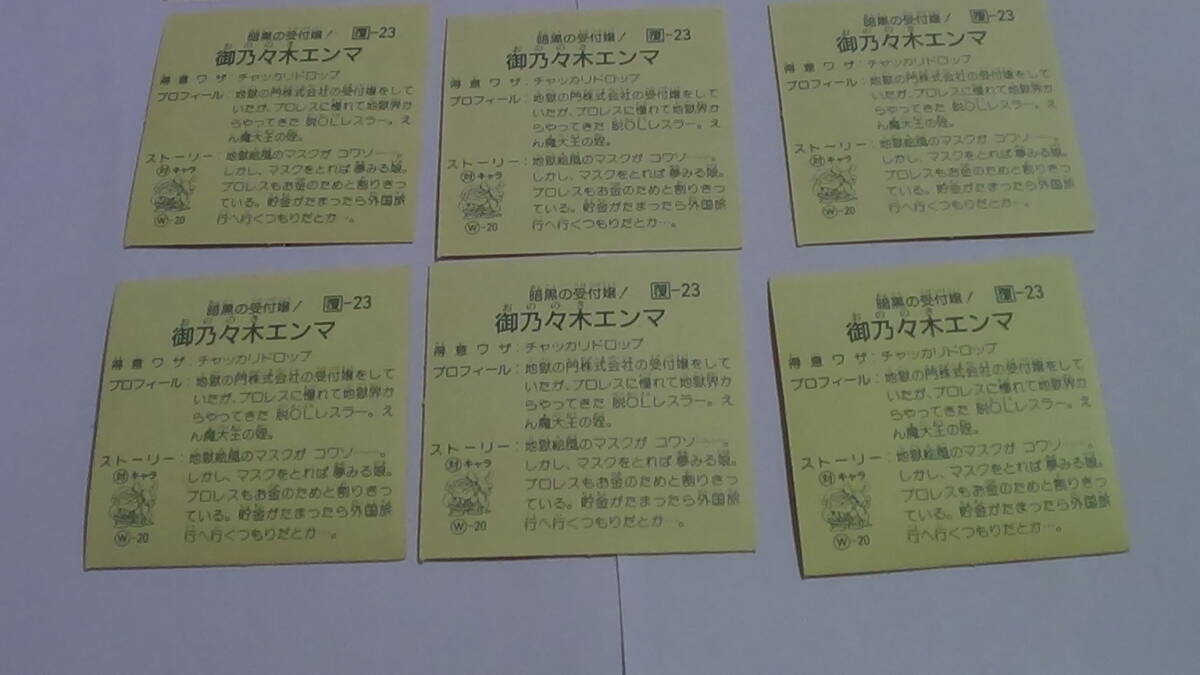 暗黒の受付嬢! 覆-23
御乃々木エンマ
得意ワザ:チャッカリドロップ
プロフィール:地獄の門株式会社の受付嬢をして
いたが、プロレスに憧れて地獄界か
らやってきた 脱OLレスラー。え
ん魔大王の姪。
ストーリー:地獄絵風のマスクが コワソ──。
対キャラ しかし、マスクをとれば 夢みる娘。
プロレスもお金のためと割りきっ
ている。貯金がたまったら外国旅
W-20 行へ行くつもりだとか…。
暗黒の受付嬢! 覆-23
御乃々木エンマ
得意ワザ:チャッカリドロップ
プロフィール:地獄の門株式会社の受付嬢をして
いたが、プロレスに憧れて地獄界か
らやってきた 脱OLレスラー。え
ん魔大王の姪。
ストーリー:地獄絵風のマスクが コワソ──。
対キャラ しかし、マスクをとれば 夢みる娘。
プロレスもお金のためと割りきっ
ている。貯金がたまったら外国旅
W-20 行へ行くつもりだとか…。
暗黒の受付嬢! 覆-23
御乃々木エンマ
得意ワザ:チャッカリドロップ
プロフィール:地獄の門株式会社の受付嬢をして
いたが、プロレスに憧れて地獄界か
らやってきた 脱OLレスラー。え
ん魔大王の姪。
ストーリー:地獄絵風のマスクが コワソ──。
対キャラ しかし、マスクをとれば 夢みる娘。
プロレスもお金のためと割りきっ
ている。貯金がたまったら外国旅
W-20 行へ行くつもりだとか…。
暗黒の受付嬢! 覆-23
御乃々木エンマ
得意ワザ:チャッカリドロップ
プロフィール:地獄の門株式会社の受付嬢をして
いたが、プロレスに憧れて地獄界か
らやってきた 脱OLレスラー。え
ん魔大王の姪。
ストーリー:地獄絵風のマスクが コワソ──。
対キャラ しかし、マスクをとれば 夢みる娘。
プロレスもお金のためと割りきっ
ている。貯金がたまったら外国旅
W-20 行へ行くつもりだとか…。
暗黒の受付嬢! 覆-23
御乃々木エンマ
得意ワザ:チャッカリドロップ
プロフィール:地獄の門株式会社の受付嬢をして
いたが、プロレスに憧れて地獄界か
らやってきた 脱OLレスラー。え
ん魔大王の姪。
ストーリー:地獄絵風のマスクが コワソ──。
対キャラ しかし、マスクをとれば 夢みる娘。
プロレスもお金のためと割りきっ
ている。貯金がたまったら外国旅
W-20 行へ行くつもりだとか…。
暗黒の受付嬢! 覆-23
御乃々木エンマ
得意ワザ:チャッカリドロップ
プロフィール:地獄の門株式会社の受付嬢をして
いたが、プロレスに憧れて地獄界か
らやってきた 脱OLレスラー。え
ん魔大王の姪。
ストーリー:地獄絵風のマスクが コワソ──。
対キャラ しかし、マスクをとれば 夢みる娘。
プロレスもお金のためと割りきっ
ている。貯金がたまったら外国旅
W-20 行へ行くつもりだとか…。